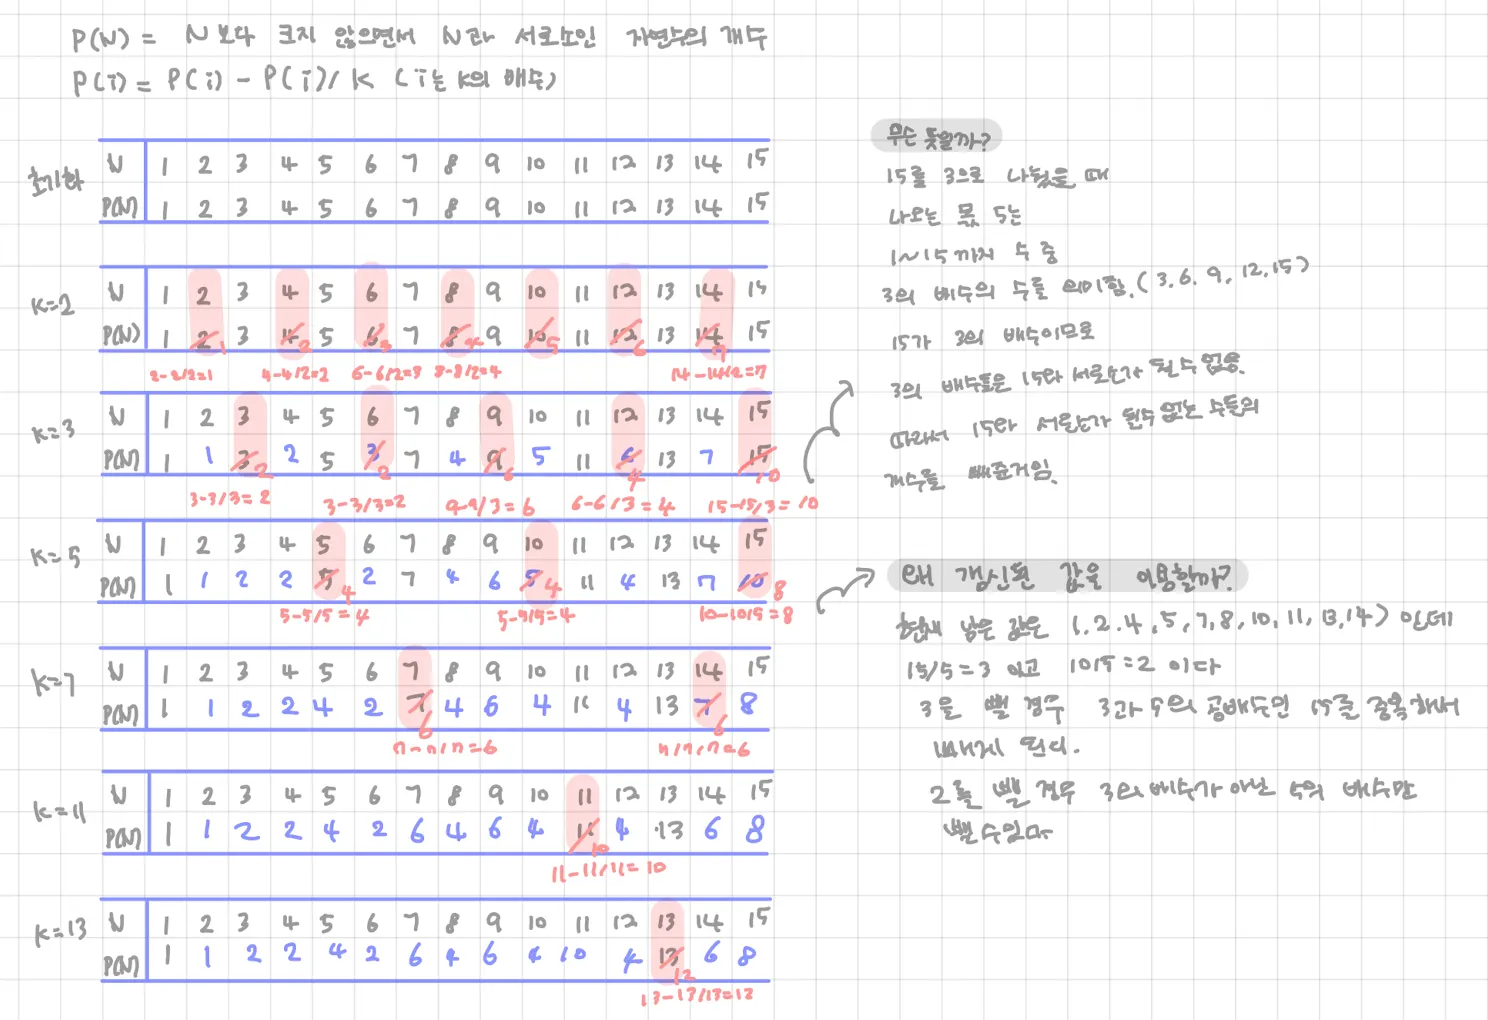 P(N) = N보다 크지 않으면서 N과 서로소인 자연수의 개수
P(i) = P(i) - P(i)/K (i는 K의 배수)
초기화
N 1 2 3 4 5 6 7 8 9 10 11 12 13 14 15
P(N) 1 2 3 4 5 6 7 8 9 10 11 12 13 14 15
K=2
N 1 2 3 4 5 6 7 8 9 10 11 12 13 14 15
P(N) 1 2 1 3 4 2 5 6 3 7 8 4 9 10 5 11 12 6 13 14 7 15
2-2/2=1 4-4/2=2 6-6/2=3 8-8/2=4 14-14/2=7
K=3
N 1 2 3 4 5 6 7 8 9 10 11 12 13 14 15
P(N) 1 1 3 2 2 5 3 2 7 4 9 6 5 11 6 4 13 7 15 10
3-3/3=2 3-3/3=2 9-9/3=6 6-6/3=4 15-15/3=10
K=5
N 1 2 3 4 5 6 7 8 9 10 11 12 13 14 15
P(N) 1 1 2 2 5 4 2 7 4 6 5 4 11 4 13 7 10 8
5-5/5=4 5-5/5=4 10-10/5=8
K=7
N 1 2 3 4 5 6 7 8 9 10 11 12 13 14 15
P(N) 1 1 2 2 4 2 7 6 4 6 4 11 4 13 7 6 8
7-7/7=6 7/7/7=6
K=11
N 1 2 3 4 5 6 7 8 9 10 11 12 13 14 15
P(N) 1 1 2 2 4 2 6 4 6 4 11 10 4 13 6 8
11-11/11=10
K=13
N 1 2 3 4 5 6 7 8 9 10 11 12 13 14 15
P(N) 1 1 2 2 4 2 6 4 6 4 10 4 13 12 6 8
13-13/13=12
무슨 뜻일까?
15를 3으로 나눴을 때
나오는 몫 5는
1~15까지 수 중
3의 배수의 수를 의미함. (3, 6, 9, 12, 15)
15가 3의 배수이므로
3의 배수들은 15와 서로소가 될 수 없음.
따라서 15와 서로소가 될수 없는 수들의
개수를 빼준거임.
왜 갱신된 값을 이용할까?
현재 남은 값은 1, 2, 4, 5, 7, 8, 10, 11, 13, 14) 인데
15/5=3 이고 10/5=2 이다
3을 뺄 경우 3과 5의 공배수인 15를 중복해서
빼게 된다.
2를 뺄 경우 3의 배수가 아닌 5의 배수만
뺄 수 있다